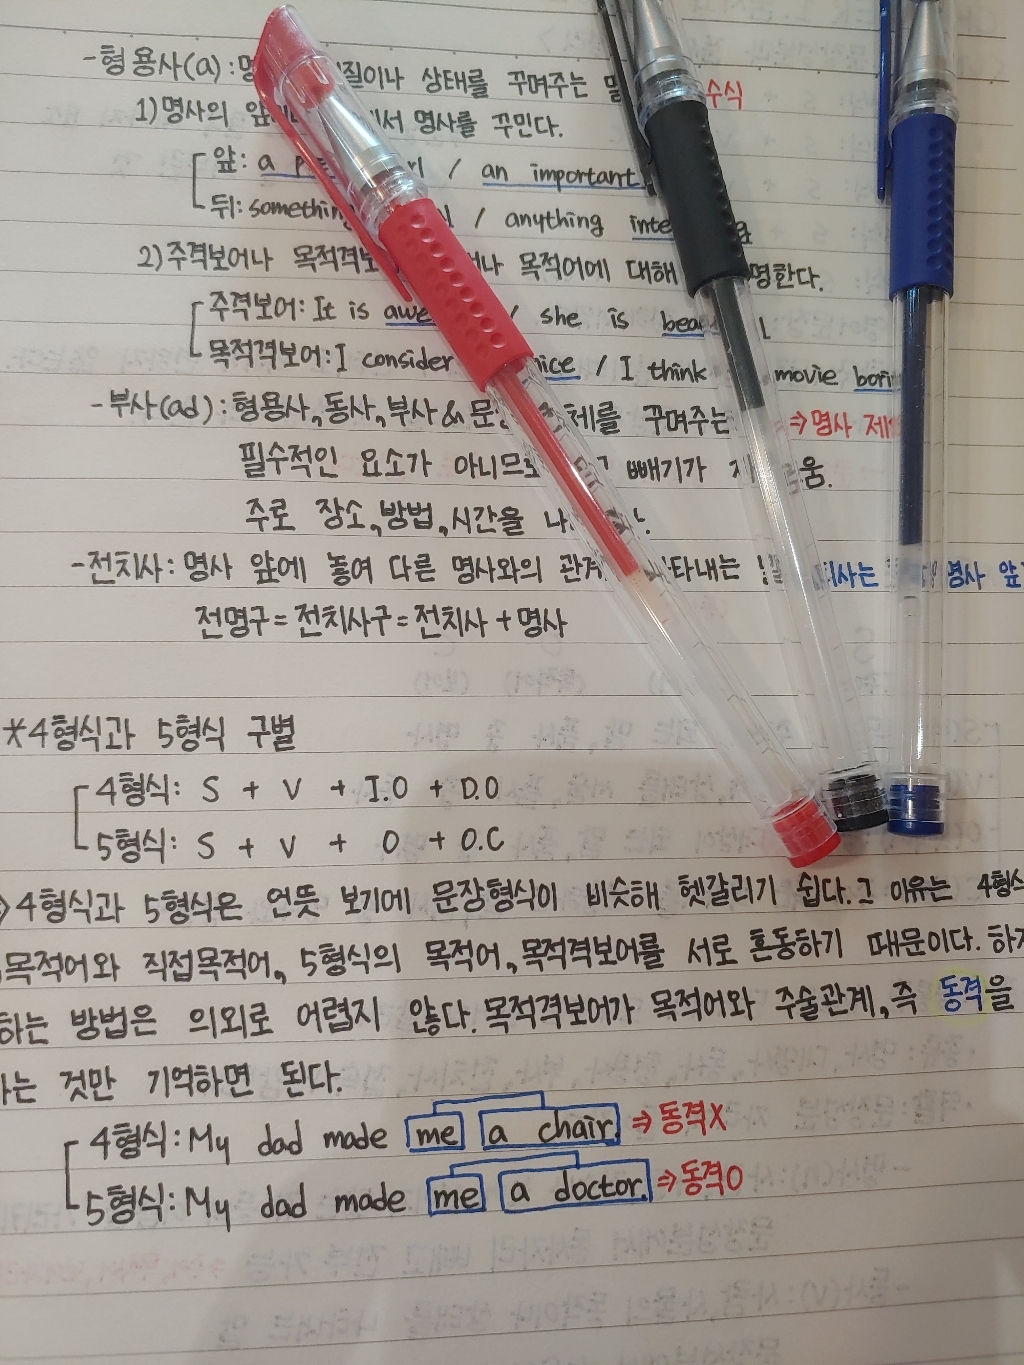 -형용사(a): 질이나 상태를 꾸며주는 수식
1) 명사의 앞 서 명사를 꾸민다.
앞: a / an important
뒤: / anything
2) 주격보어나 목적어에 대해 명한다.
주격보어: It is / she is
목적격보어: I consider / I think movie
-부사(ad): 형용사, 동사, 부사 & 체를 꾸며주는 ⇒ 명사
필수적인 요소가 빼기가
주로 장소, 방법, 시간을
-전치사: 명사 앞에 놓여 다른 명사와의 명사 앞
전명구 = 전치사구 = 전치사 + 명사
*4형식과 5형식 구별
4형식: S + V + I.O + D.O
5형식: S + V + O + O.C
4형식과 5형식은 언뜻 보기에 문장형식이 비슷해 헷갈리기 쉽다. 그 이유는
목적어와 직접목적어, 5형식의 목적어, 목적격보어를 서로 혼동하기 때문이다.
하는 방법은 의외로 어렵지 않다. 목적격보어가 목적어와 주술관계, 즉 동격을
는 것만 기억하면 된다.
4형식: My dad made me a chair. ⇒ 동격X
5형식: My dad made me a doctor. ⇒ 동격O